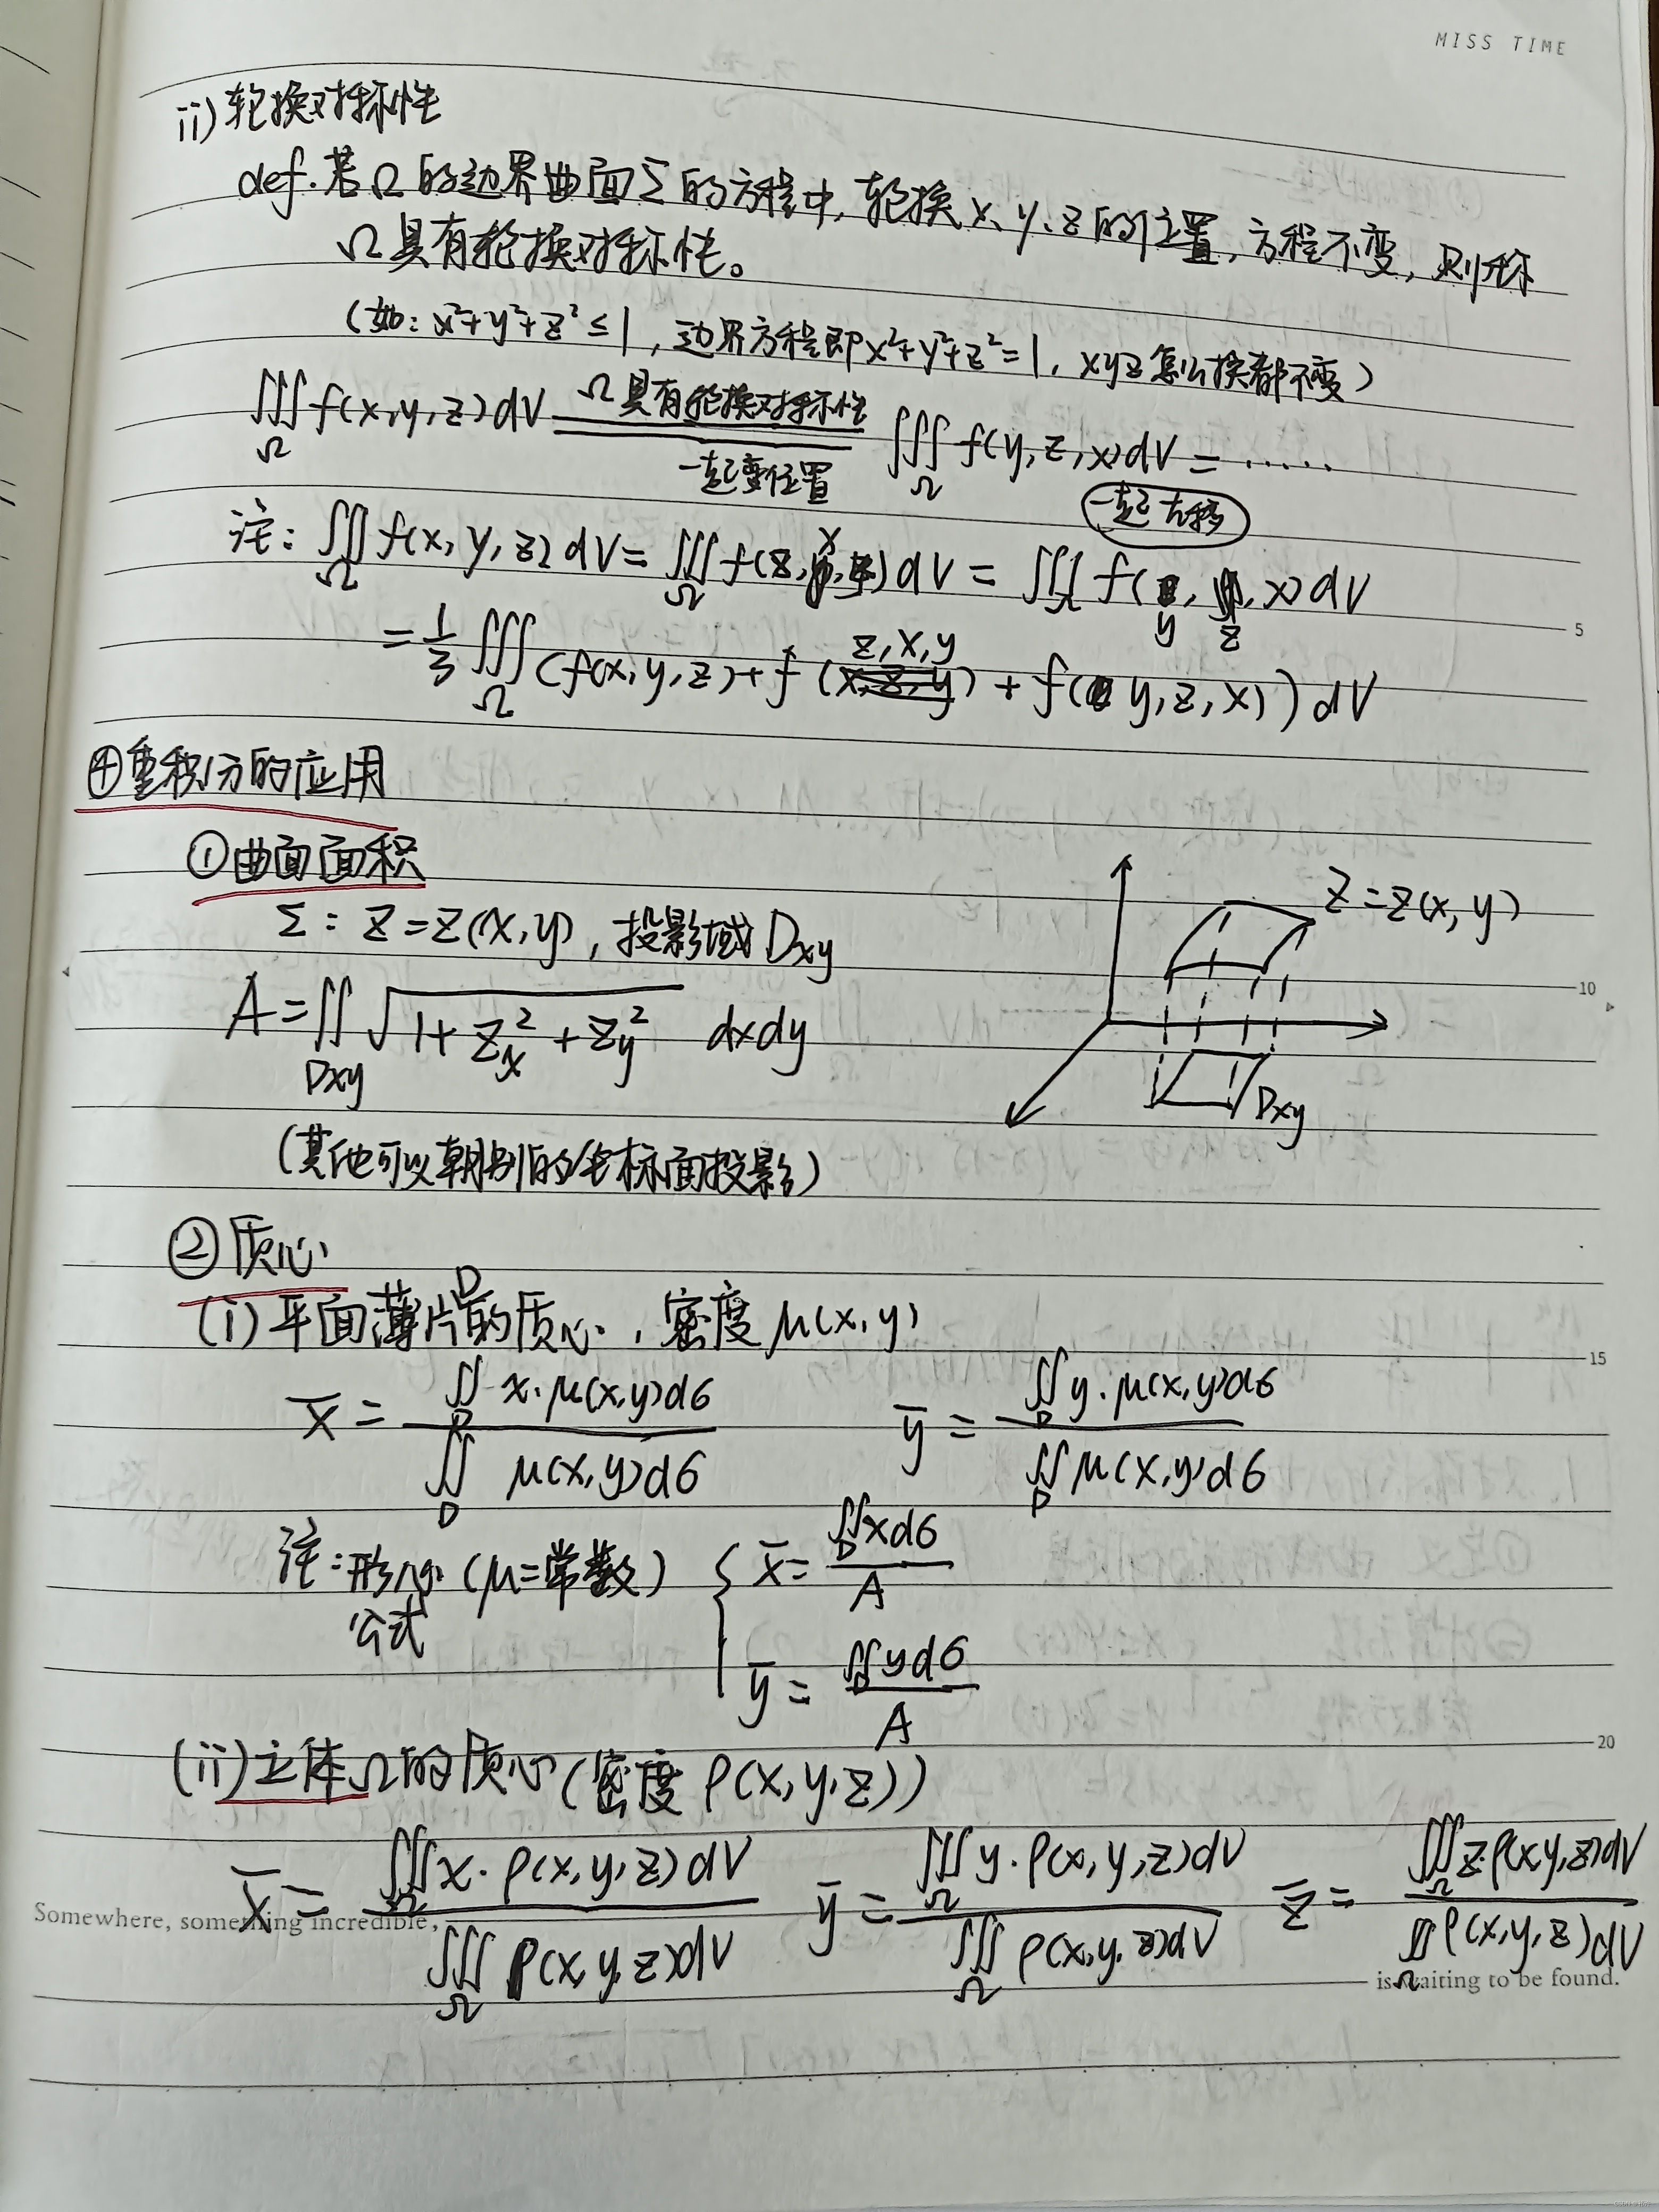 MISS TIME
ii) 轮换对称性
def. 若Ω的边界曲面Σ的方程中, 轮换 x、y、z的位置, 方程不变, 则称
Ω具有轮换对称性。
(如: x²+y²+z²≤1, 边界方程即x²+y²+z²=1, xyz怎么换都不变)
∭_Ω f(x,y,z)dV = ∭_Ω f(y,z,x)dV = ......
Ω具有轮换对称性
一起变位置
一起右移
注: ∭_Ω f(x,y,z)dV = ∭_Ω f(z,x,y)dV = ∭_Ω f(y,z,x)dV
= 1/3 ∭_Ω (f(x,y,z)+f(z,x,y)+f(y,z,x))dV
5
④重积分的应用
①曲面面积
Σ: z=z(x,y), 投影域Dxy
z=z(x,y)
A=∬_Dxy √(1+z_x²+z_y²) dxdy
10
Dxy
(其他可以朝别的坐标面投影)
②质心
(i)平面薄片D的质心, 密度μ(x,y)
15
x̄ = ∬_D x·μ(x,y)dσ / ∬_D μ(x,y)dσ ȳ = ∬_D y·μ(x,y)dσ / ∬_D μ(x,y)dσ
注: 形心(μ=常数)公式 { x̄ = ∬_D xdσ / A
ȳ = ∬_D ydσ / A
20
(ii)立体Ω的质心(密度ρ(x,y,z))
x̄ = ∭_Ω x·ρ(x,y,z)dV / ∭_Ω ρ(x,y,z)dV ȳ = ∭_Ω y·ρ(x,y,z)dV / ∭_Ω ρ(x,y,z)dV z̄ = ∭_Ω z·ρ(x,y,z)dV / ∭_Ω ρ(x,y,z)dV
Somewhere, something incredible,
is waiting to be found.